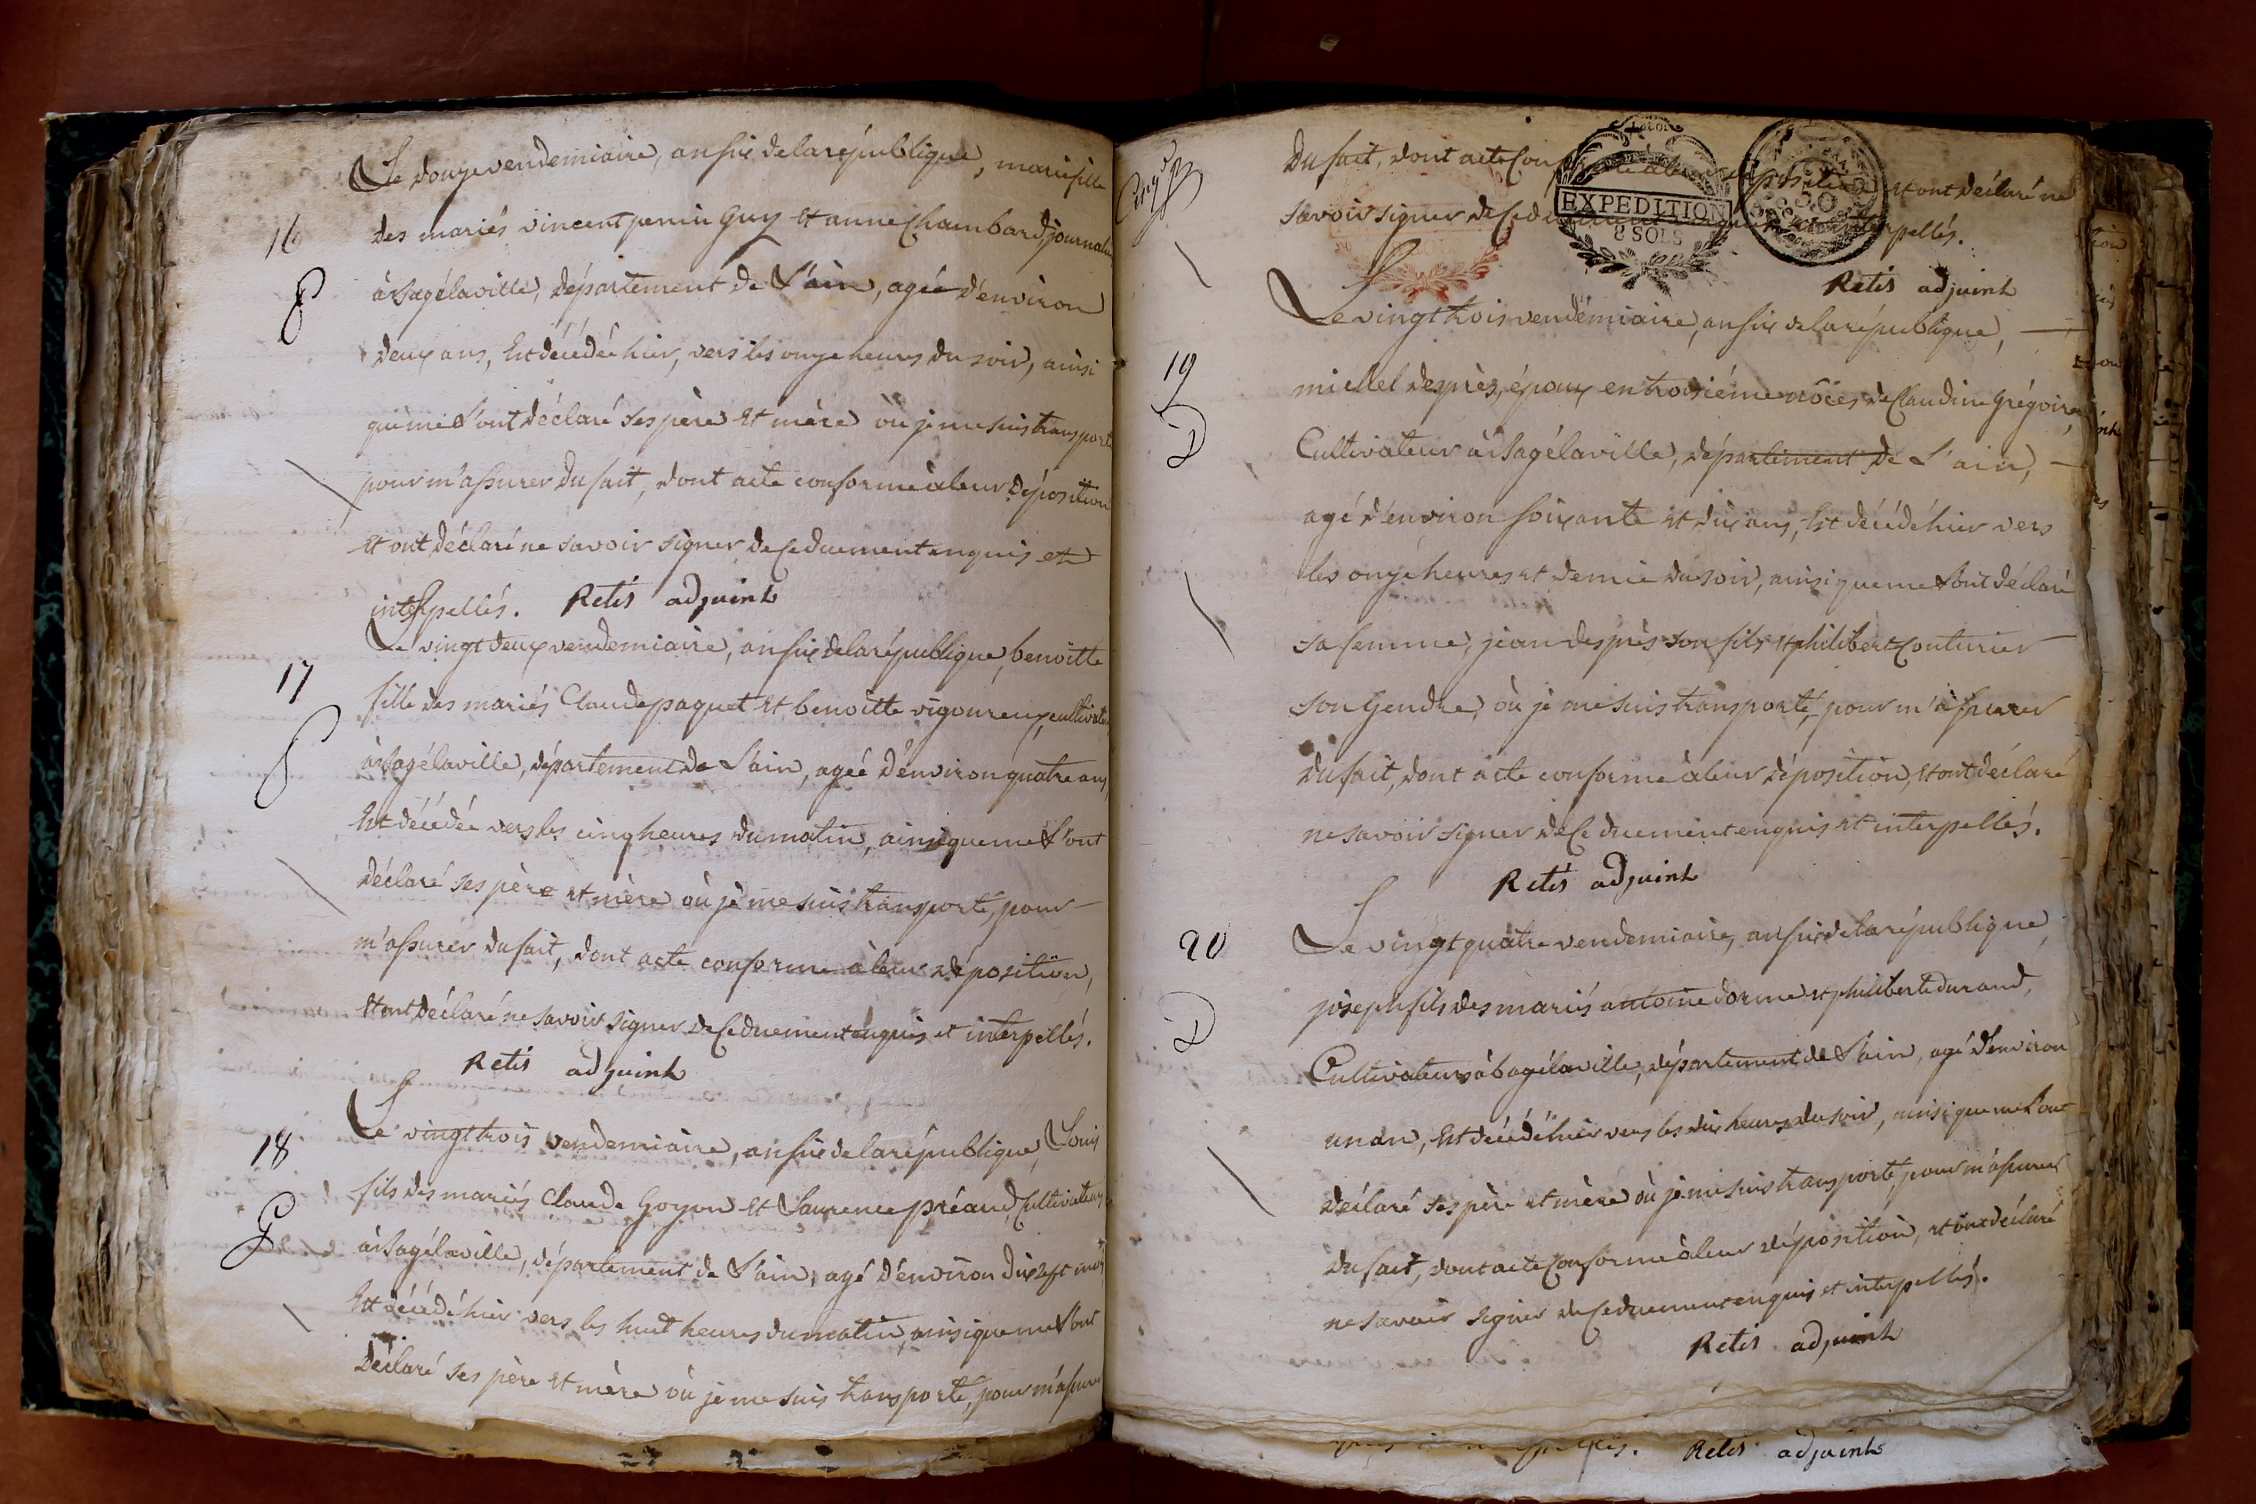 Le douze vendemiaire, an six de la république, marie fille
16
des mariés vincent perrin Guy et anne Chambard journaliers
à Bagélaville, département de L'ain, agée d'environ
deux ans, Est décédée hier, vers les onze heures du soir, ainsi
que me L'ont déclaré ses père et mère où je me suis transporté
pour m'assurer du fait, dont acte conforme à leur déposition
et ont déclaré ne savoir signer de Ce duement enquis et
interpellés. Retis adjuint
Le vingt deux vendemiaire, an six de la république, benoitte
17
fille des mariés Claude paquet et benoitte vigoureux, cultivateurs
à Bagélaville, département de L'ain, agée d'environ quatre ans,
Est décédée vers les cinq heures du matin, ainsi que me L'ont
déclaré ses père et mère où je me suis transporté, pour
m'assurer du fait, dont acte conforme à leur déposition,
et ont déclaré ne savoir signer de Ce duement enquis et interpellés.
Retis adjuint
Le vingt trois vendemiaire, an six de la république, Louis
18
fils des mariés Claude Goyon et Laurence préaud, Cultivateurs
à Bagélaville, département de L'ain, agé d'environ dix sept mois
Est décédé hier vers les huit heures du matin, ainsi que me L'ont
Déclaré ses père et mère où je me suis transporté, pour m'assurer
Du fait, dont acte Conforme à leur déposition et ont déclaré ne
savoir signer de Ce duement enquis et interpellés.
EXPEDITION
8 SOLS
50
Retis adjuint
Le vingt trois vendémiaire, an six de la république,
19
michel desprès, époux en troisiéme nôces de Claudine Grégoire,
Cultivateur à Bagélaville, département de L'ain,
agé d'environ soixante et dix ans, Est décédé hier vers
les onze heures et demie du soir, ainsi que me L'ont déclaré
sa femme, jean desprès son fils et philibert Couturier
son Gendre, où je me suis transporté, pour m'assurer
du fait, dont acte conforme à leur déposition, et ont déclaré
ne savoir signer de Ce duement enquis et interpellés.
Retis adjuint
Le vingt quatre vendemiaire, an six de la république,
20
joseph fils des mariés antoine dorme et philiberte durand,
Cultivateurs à bagélaville, département de L'ain, agé d'environ
un an, Est décédé hier vers les dix heures du soir, ainsi que me L'ont
déclaré ses père et mère où je me suis transporté, pour m'assurer
du fait, dont acte Conforme à leur déposition, et ont déclaré
ne savoir signer de Ce duement enquis et interpellés.
Retis adjuint
Retis adjuint